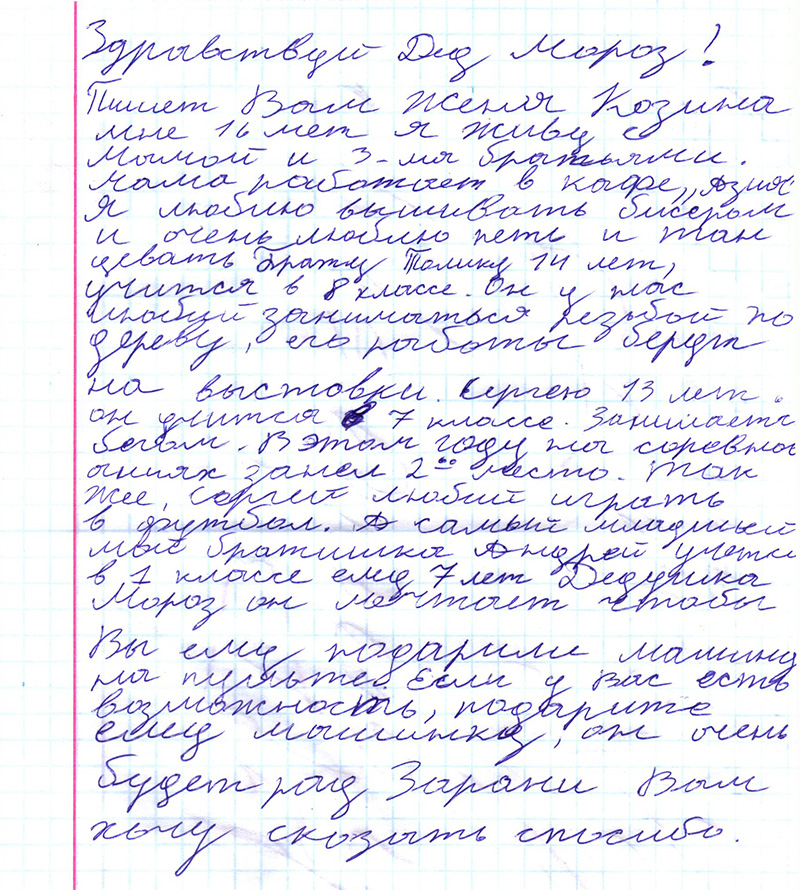 Здравствуй Дед Мороз!
Пишет Вам Женя Козина
мне 16 лет я живу с
мамой и 3-мя братьями.
мама работает в кафе, „Азия“
Я люблю вышивать бисером
и очень люблю петь и тан
цевать Брату Толику 14 лет,
учится в 8 классе. Он у нас
любит заниматься резьбой по
дереву, его работы берут
на выставки. Сергею 13 лет.
он учится в 7 классе. Занимается
бегом. В этом году на соревнов
аниях занел 2ое место. Так
же, Сергей любит играть
в футбол. А самый младший
мой братишка Андрей учится
в 1 классе ему 7 лет Дедушка
Мороз он мечтает чтобы
Вы ему подарили машину
на пульте. Если у Вас есть
возможность, подарите
ему машинку, он очень
будет рад Зарани Вам
хочу сказать спасибо.